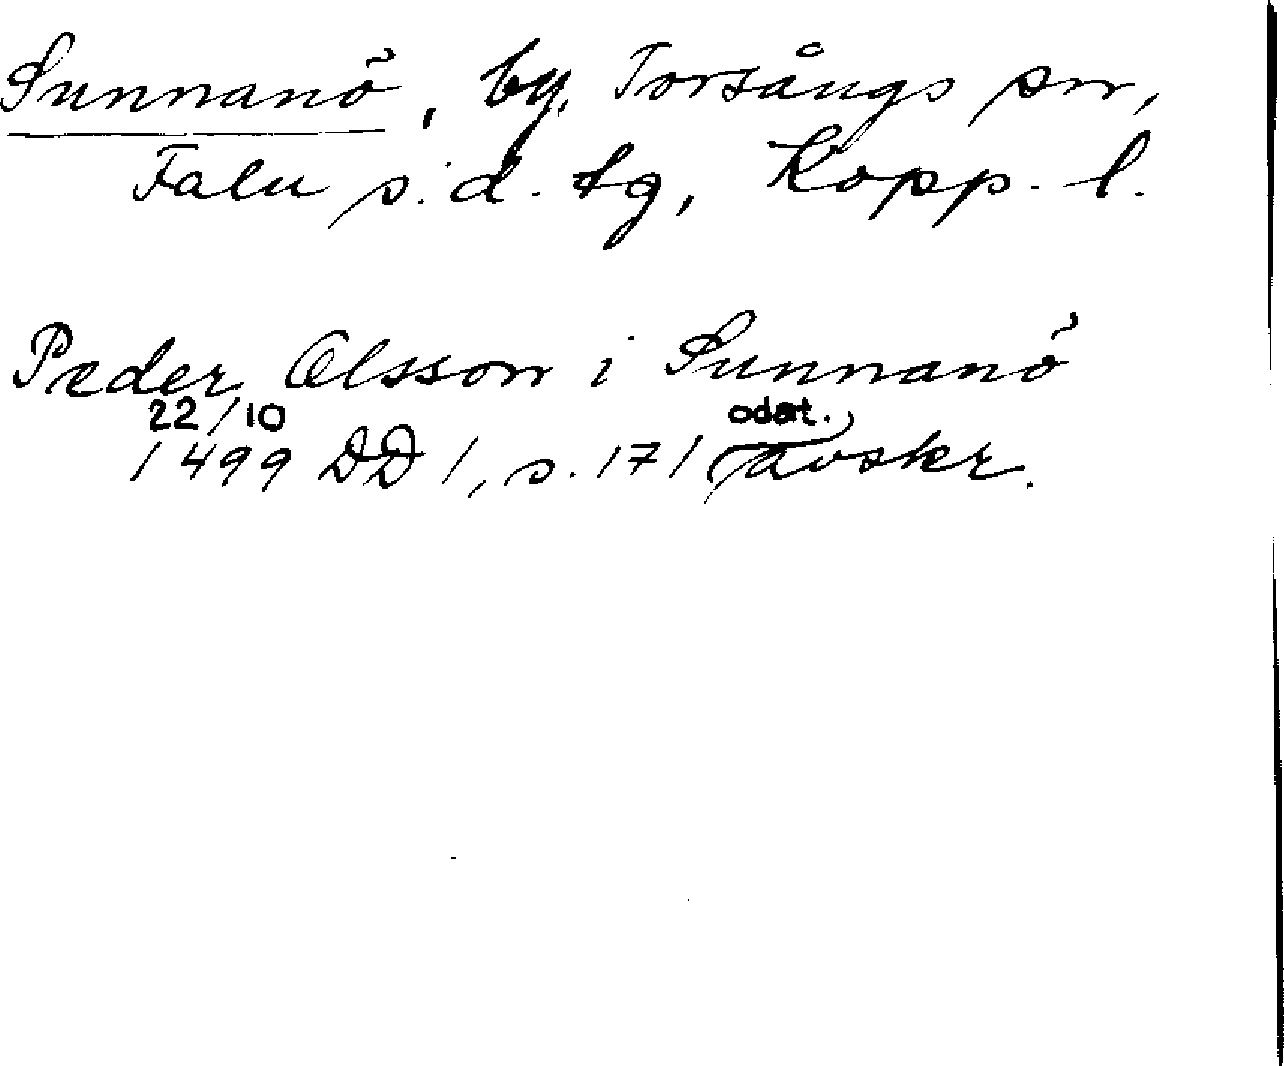 Sunnanö, by, Torsångs sn,
Falu s. d. tg, Kopp. l.
Peder Olsson i Sunnanö
22/10 odat.
1499 DD 1, s. 171 avskr.